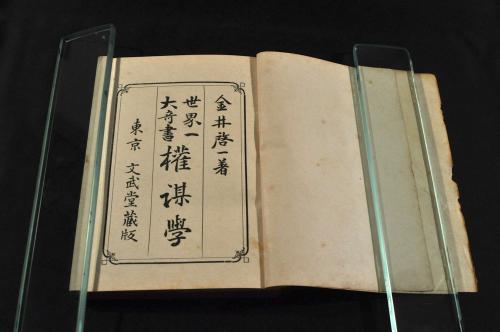 金井啓一著
世界一
大奇書
權謀學
東京 文武堂藏版